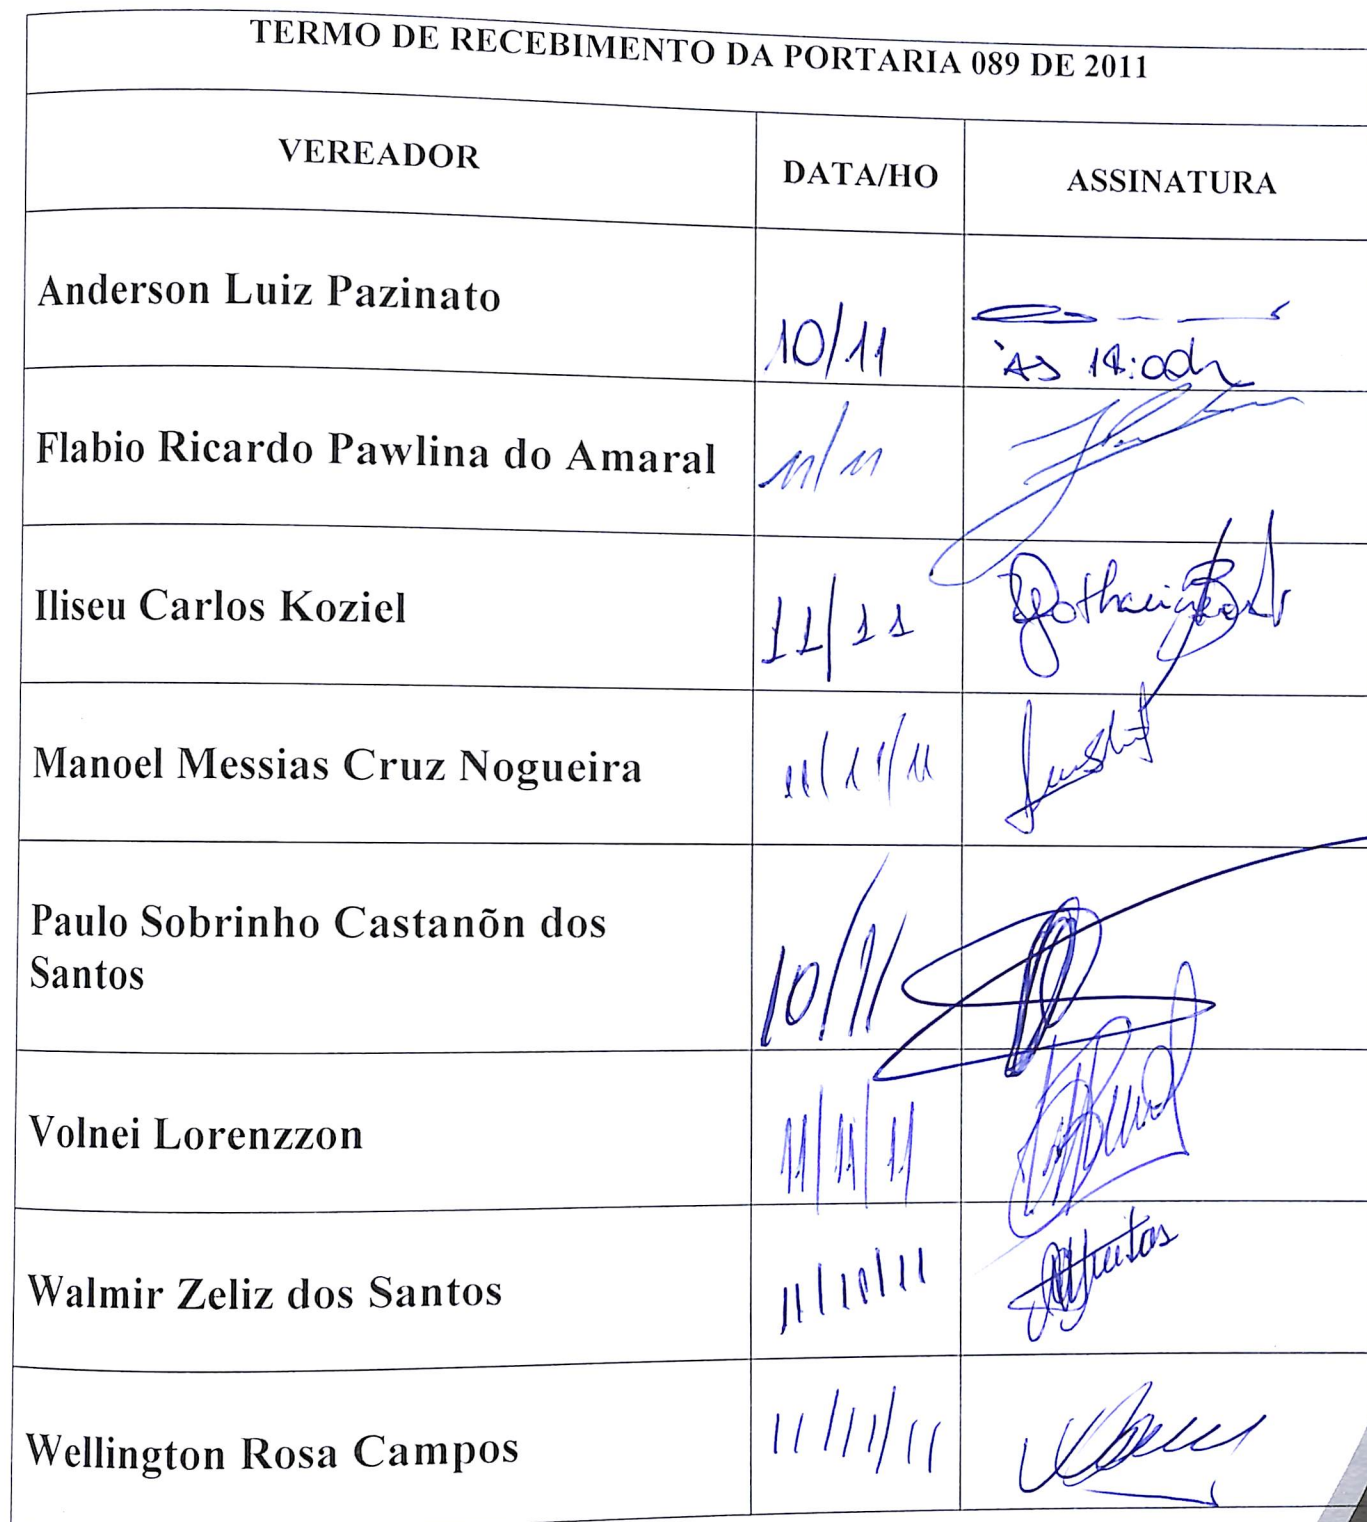 TERMO DE RECEBIMENTO DA PORTARIA 089 DE 2011
VEREADOR DATA/HO ASSINATURA
Anderson Luiz Pazinato 10/11
às 14:00h
Flabio Ricardo Pawlina do Amaral 11/11
Iliseu Carlos Koziel 11/11
Manoel Messias Cruz Nogueira 11/11/11
Paulo Sobrinho Castanõn dos
Santos 10/11
Volnei Lorenzzon 11/11/11
Walmir Zeliz dos Santos 11/10/11
Wellington Rosa Campos 11/11/11